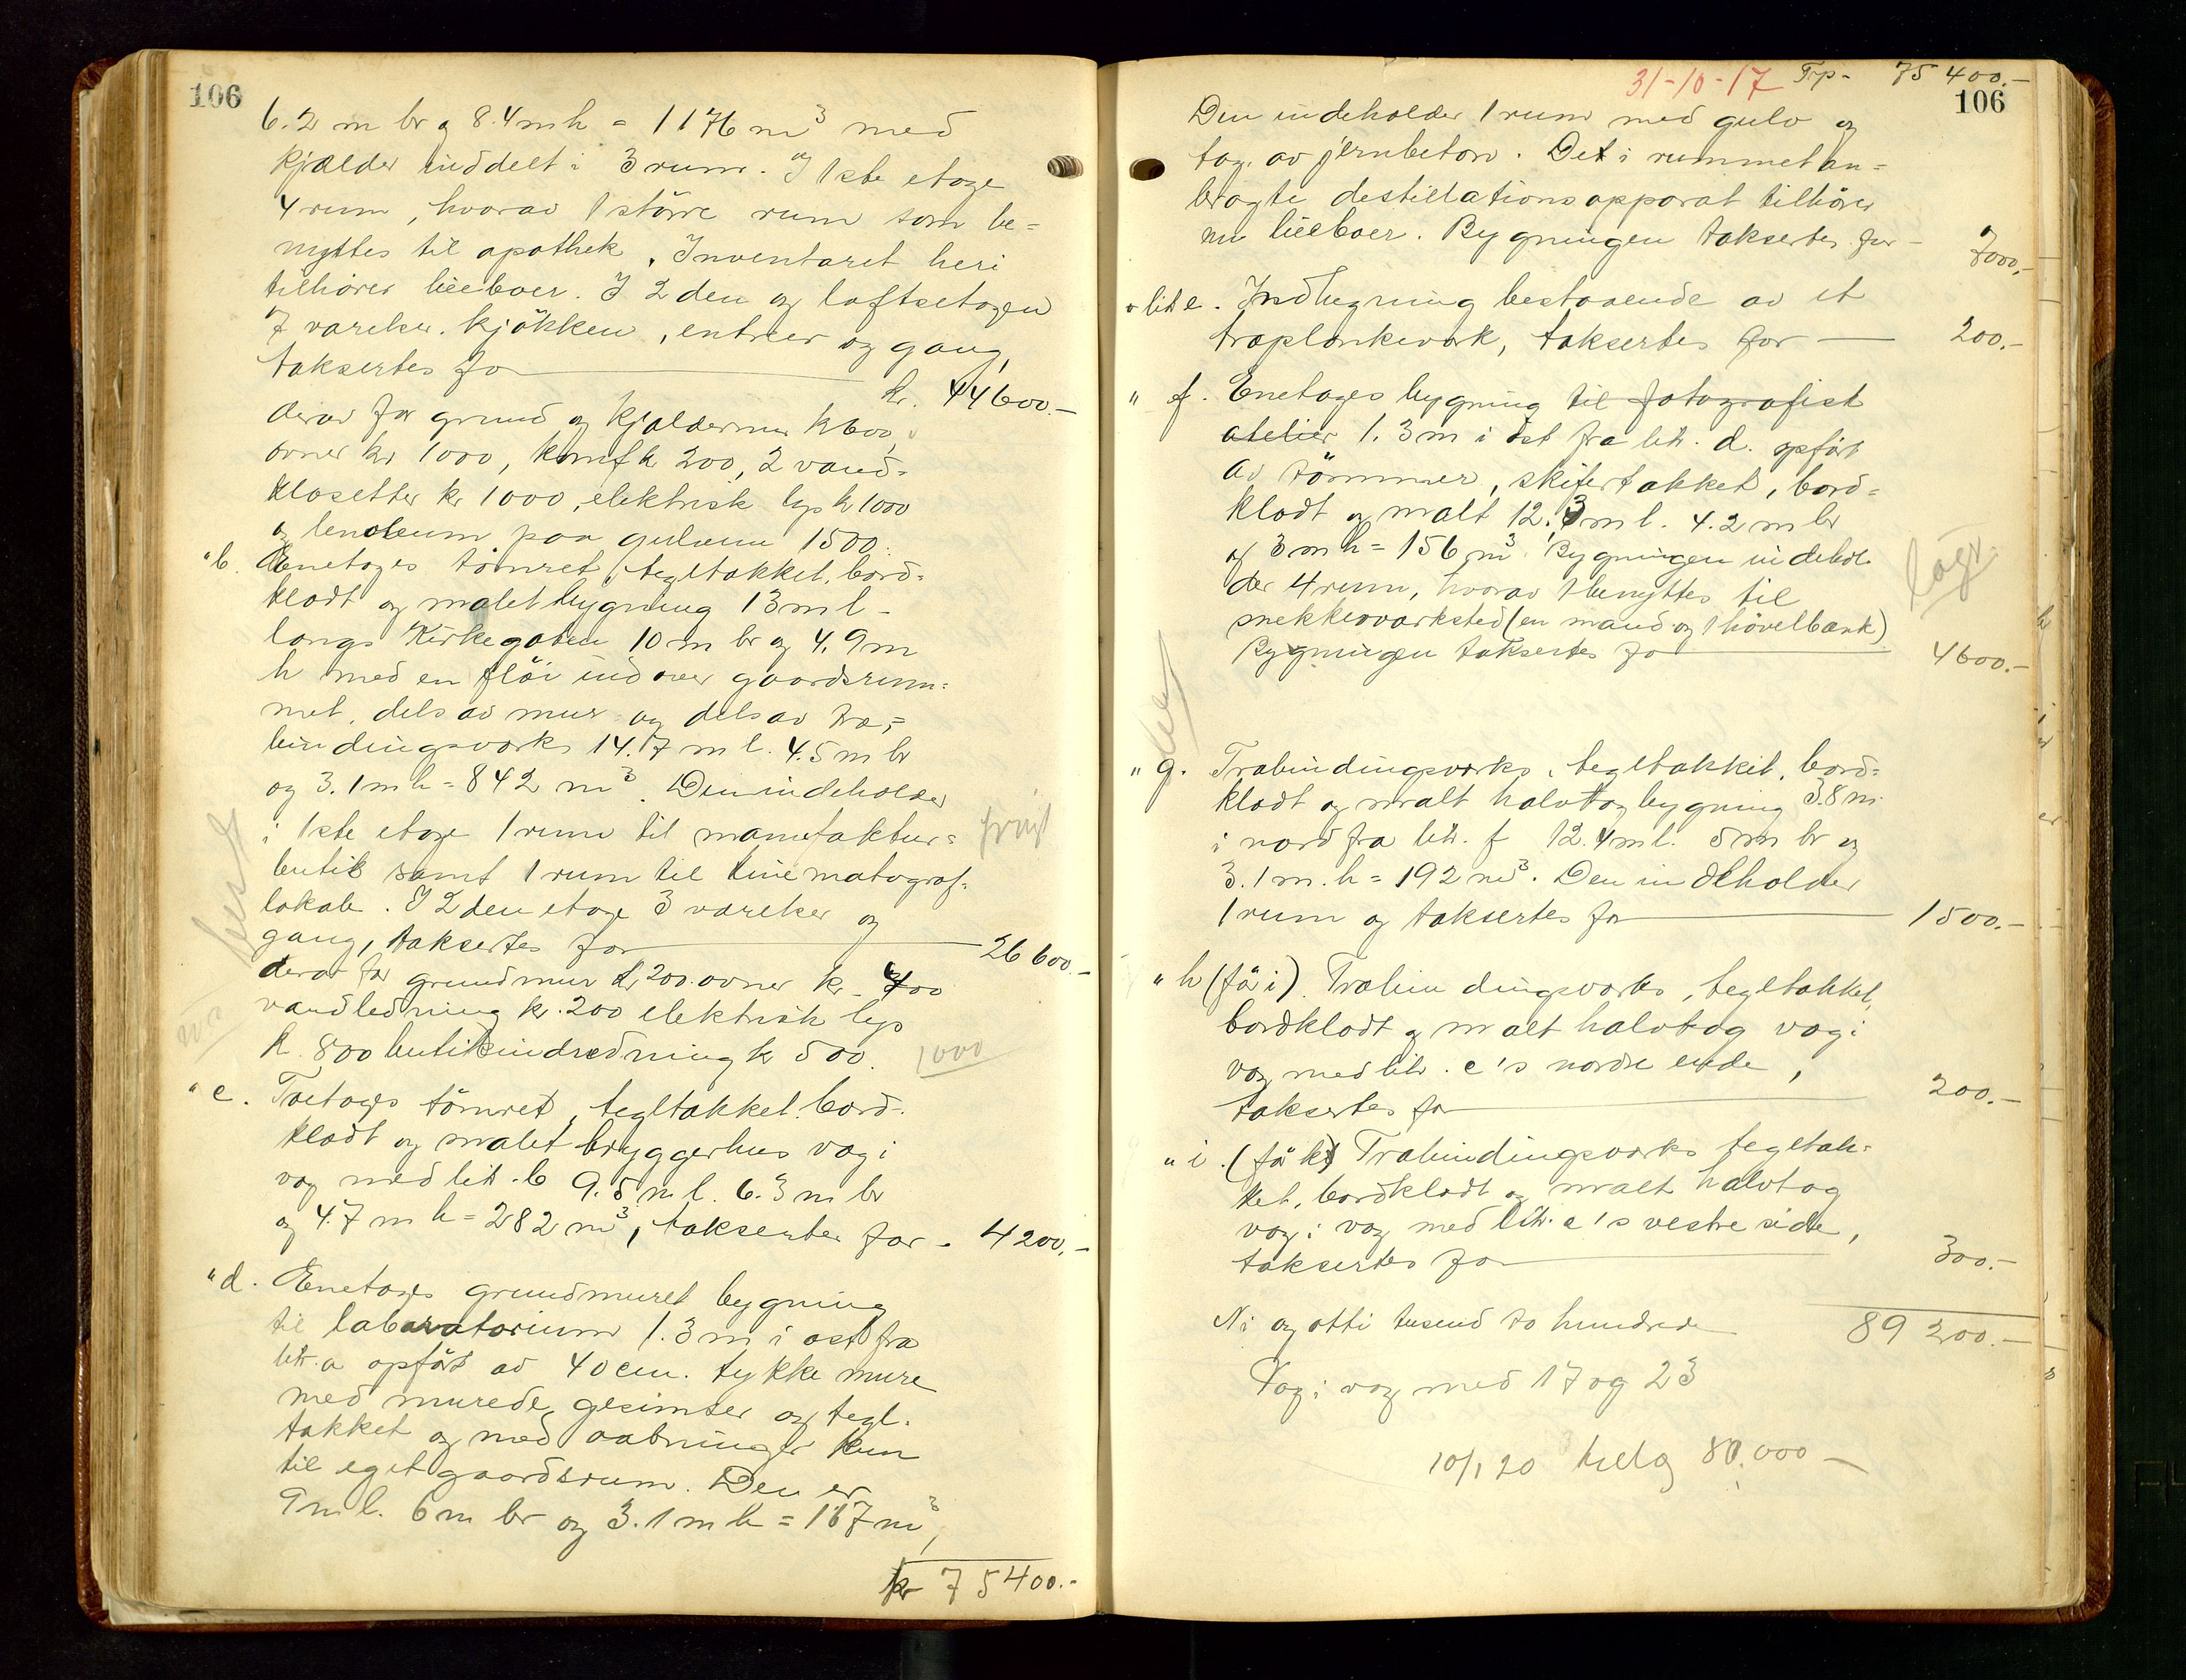 106
6.2 m br og 8.4 m h = 1176 m³ med
kjælder inddelt i 3 rum. I 1ste etage
4 rum, hvorav 1 större rum som be=
nyttes til apothek. Inventaret heri
tilhörer lieboer. I 2den og loftsetagen
7 værelser. kjökken, entreer og gang,
taksertes for kr. 44600.-
derav for grund og kjældermur kr 600,
ovner kr 1000, komf kr 200, 2 vand=
klosetter kr 1000, elektrisk lys kr 1000
og lenoleum paa gulvene 1500.
"b. Enetages tömret, tegltækket, bord=
klædt og malet bygning 13 m l -
langs Kirkegaten 10 m br og 4.9 m
h med en flöi ind over gaardsrum=
met, dels av mur og dels av træ=
bindingsverks 14.7 m l. 4.5 m br
og 3.1 m h = 842 m³. Den indeholder
i 1ste etage 1 rum til manufaktur=
butik samt 1 rum til kinematograf=
lokale. I 2den etage 3 værelser og
gang, taksertes for 26600.-
derav for grundmur kr 200. ovner kr. 400
vandledning kr. 200 elektrisk lys
kr. 800 butikindredning kr 500. 1000
"c. Toetages tömret, tegltækket. bord=
klædt og malet bryggerhus væg i
væg med litr. b 9.5 m l. 6.3 m br
og 4.7 m h = 282 m³, taksertes for - 4200.-
"d. Enetages grundmuret bygning
til laboratorium 1.3 m i ost fra
litr. a opfört av 40 cm. tykke mure
med murede gesimser og tegl=
tækket og med aabninger kun
til eget gaardsrum. Den er
9 m l. 6 m br og 3.1 m h = 167 m³,
kr 75400.-
31-10-17 Trp- 75400.-
106
Den indeholder 1 rum med gulv og
tag av jernbeton. Det i rummet an=
bragte destillationsapparat tilhörer
nu lieboer. Bygningen taksertes for - 7000.-
" litr e. Indhegning bestaaende av et
træplankeverk, taksertes for 200.-
" f. Enetages bygning til fotografisk
atelier 1.3 m i öst fra litr. d. opfört
av tömmer, skifertækket, bord=
klædt og malt 12.3 m l. 4.2 m br
og 3 m h = 156 m³. Bygningen indehol=
der 4 rum, hvorav 1 benyttes til
snekkerverksted (en mand og 1 hövelbænk)
Bygningen taksertes for 4600.-
" g. Træbindingsverks, tegltækket, bord=
klædt og malt halvtagbygning 3.8 m
i nord fra litr. f 12.4 m l. 5 m br og
3.1 m. h = 192 m³. Den indeholder
1 rum og taksertes for 1500.-
" h (för i). Træbindingsverks, tegltækket,
bordklædt og malt halvtag væg i
væg med litr. c's nordre ende,
taksertes for 200.-
" i. (för k) Træbindingsverks tegltæk=
ket, bordklædt og malt halvtag
væg i væg med litr. a's vestre side,
taksertes for 300.-
Ni og otti tusend to hundrede 89200.-
Væg i væg med 17 og 23
10/1 20 tillæg 80.000 -